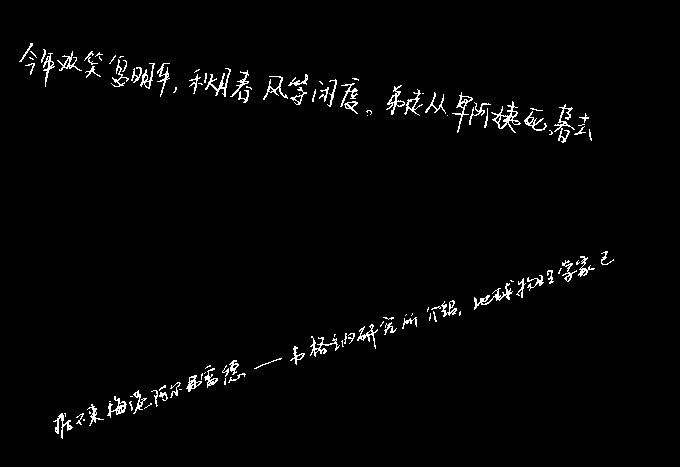 今年欢笑复明年，秋月春风等闲度。弟走从军阿姨死，暮去
据不来梅港阿尔弗雷德——韦格纳研究所介绍，地球物理学家已